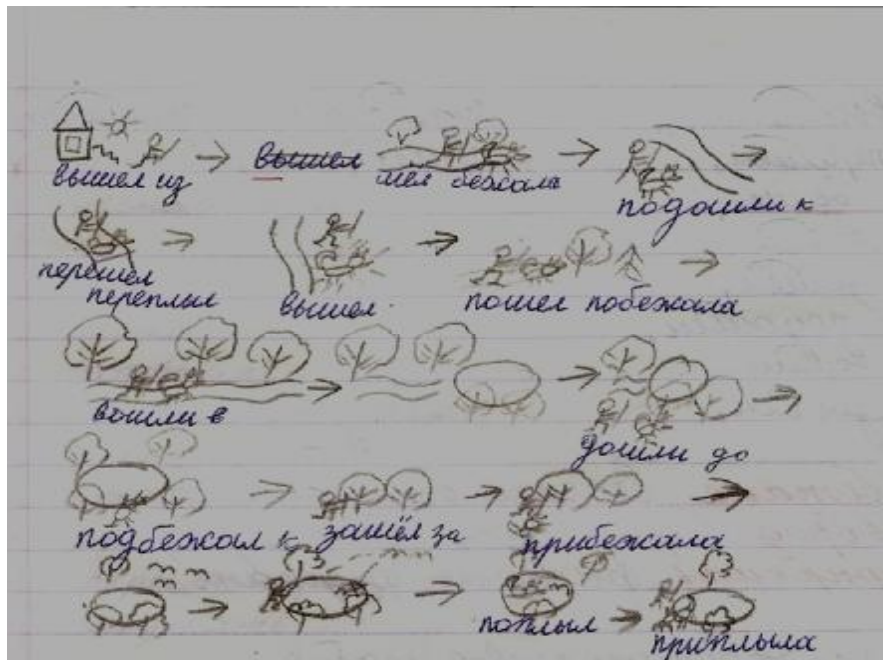 вышел из вышел шёл бежала подошли к
перешел
переплыл вышел пошел побежала
вошли в
дошли до
подбежал к зашёл за прибежала
поплыл приплыла